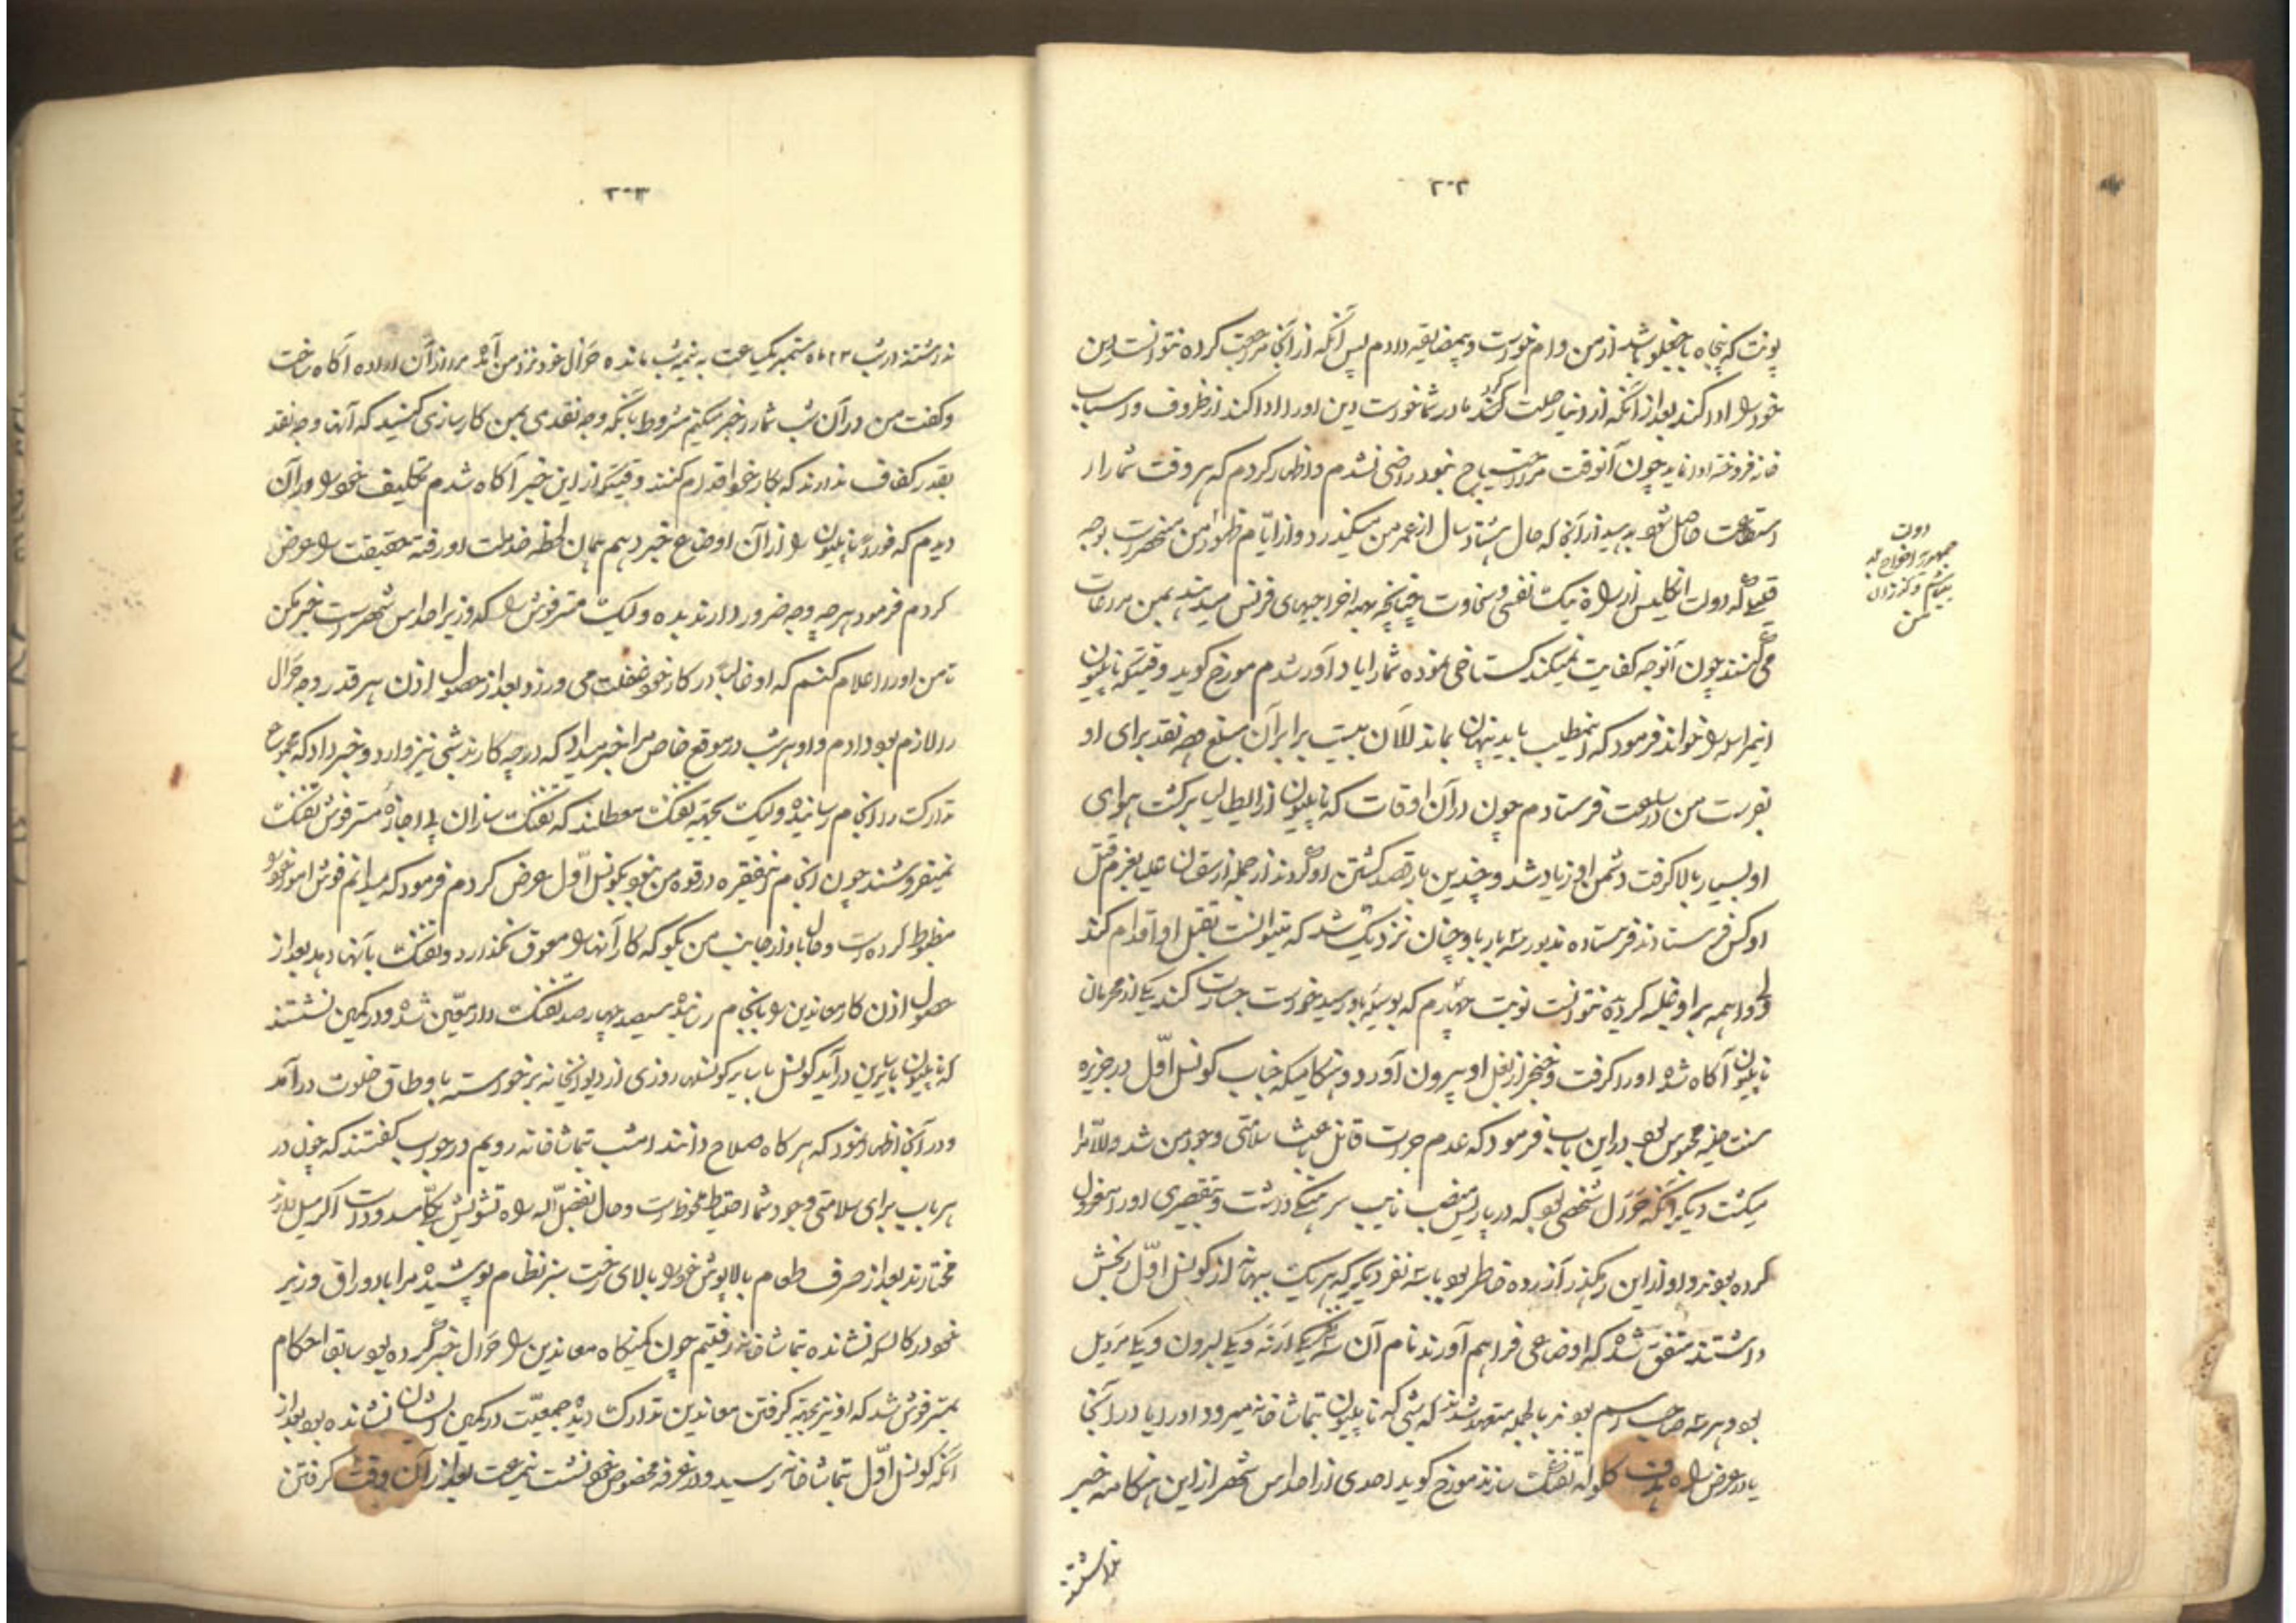 ۲۰۲
پونت که پنجاه باجقلو باشد از من وام خواست و بیمضایقه دادم پس از آنکه از آنجا مراجعت کرده نتوانست دین
خود را ادا کند بعد از آنکه از دنیا رحلت کرد مادر شما خواست دین او را ادا کند از ظروف و اسباب
خانه فروخته ادا نماید چون آنوقت مرا احتیاج نبود راضی نشدم و اظهار کردم که هر وقت شما را
استطاعت حاصل شود بدهید از آنجا که حال هشتاد سال از عمر من میگذرد و از ایام ظهور من منحصر است بوجه
قلیلی که دولت انگلیس از راه نیک نفسی و سخاوت چنانچه بهمه اخراجیهای فرنس میدهند بمن مراعات
می کنند چون آنوجه کفایت نمیکند گستاخی نموده شما را یاد آور شدم مورخ گوید وقتیکه ناپلیون
اینمراسله را خواند فرمود که اینمطلب باید پنهان بماند الآن بیست برابر آن مبلغ وجه نقد برای او
بفرست من در ساعت فرستادم چون در آن اوقات که ناپلیون از ایطالیا برگشت هوای
او بسیار بالا گرفت دشمن او زیاد شد و چندین بار قصد کشتن او کردند از جمله از سقانیا بعزم قتل
او کس فرستادند فرستاده مذبور سه بار باو چنان نزدیک شد که میتوانست بقتل او اقدام کند
ولی واهمه بر او غلبه کرده نتوانست نوبت چهارم که بوسیله باو رسید خواست جسارت کند یکی از محرمان
ناپلیون آگاه شده او را گرفت و خنجر از بغل او بیرون آورد و هنگامیکه جناب کونسل اول در جزیره
سنت هلنه محبوس بود در این باب فرمود که عدم جرات قاتل باعث سلامتی وجود من شد والا مرا
میکشت دیگر آنکه حرّال شخصی بود که در پاریس منصب نایب سرهنگی داشت و بتقصیری او را معزول
کرده بودند و او از این رهگذر آزرده خاطر بود با سه نفر دیگر که هریک ببهانه از کونسل اول رنجش
داشتند متفق شده که اوضاعی فراهم آورند نام آن سه یکی ارنه و یکی لبرون و یکی مردیل
بود و هر سه صاحب اسم بودند بالجمله متعهد شدند که شبی که ناپلیون بتماشاخانه میرود او را یا در آنجا
یا در عرض راه هدف گلوله تفنگ سازند مورخ گوید احدی از احداس شهر از این هنگامه خبر
نداشتند
دولت
جمهوریه اخراج
من
۲۰۳
نداشتند در شب ۲۳ ماه ستمبر یکساعت به نیمه شب مانده حرّال خود نزد من آمد مرا از آن اراده آگاه ساخت
و گفت من در آن شب شما را خبر میکنم مشروط بآنکه وجه نقدی بمن کارسازی کنید که آنها وجه نقد
بقدر کفاف ندارند که بکار خود اقدام کنند وقتیکه از این خبر آگاه شدم تکلیف خود را در آن
دیدم که فوراً ناپلیون را از آن اوضاع خبر دهم همان لحظه خدمت او رفته حقیقت را عرض
کردم فرمود هر چه وجه ضرور دارند بده ولیک مستر فوش را که وزیر احداس شهر است خبر مکن
تا من او را اعلام کنم که او غالباً در کار خود غفلت می ورزد بعد از حصول اذن هر قدر وجه حرّال
را لازم بود دادم و او هر شب در موقع خاص مرا خبر میداد که در چه کارند شبی نیز وارد و خبر داد که مجموع
تدارکات را انجام رسانیده ولیک بجهة تفنگ معطلند که تفنگ سازان بی اجازه مستر فوش تفنگ
نمیفروشند چون انجام اینفقره در قوه من نبود بکونسل اول عرض کردم فرمود که میدانم فوش امور خود را
مظبوط کرده است و حال باو از جانب من بگو که کار آنها را معوق نگذارد و تفنگ بآنها دهد بعد از
حصول اذن کار معاندین را بانجام رسانیده سیصد چهارصد تفنگ دار معین شده و در کمین نشستند
که ناپلیون باپرین درآید کونسل با سایر کونسلها روزی از دیوانخانه برخواسته باوطاق خلوت درآمد
و در آنجا اظهار نمود که هر گاه صلاح دانند امشب تماشاخانه رویم در جواب گفتند که چون در
هر باب برای سلامتی وجود شما احتیاط ملحوظ است و حال بفضل اله راه تشویش بکلی مسدود است اگر میل دارند
مختارند بعد از صرف طعام بالاپوش خود را بالای رخت سبز نظام پوشیده مرا با دوراق وزیر
خود در کالسکه نشانده بتماشاخانه رفتیم چون کمینگاه معاندین را حرّال خبر کرده بود سابقاً احکام
بمستر فوش شد که او نیز بجهة گرفتن معاندین تدارک دیده جمعیت در کمین ایشان نشانده بود بعد از
آنکه کونسل اول بتماشاخانه رسید و در غرفه مخصوص خود نشست نیم ساعت بعد از آن وقت گرفتن